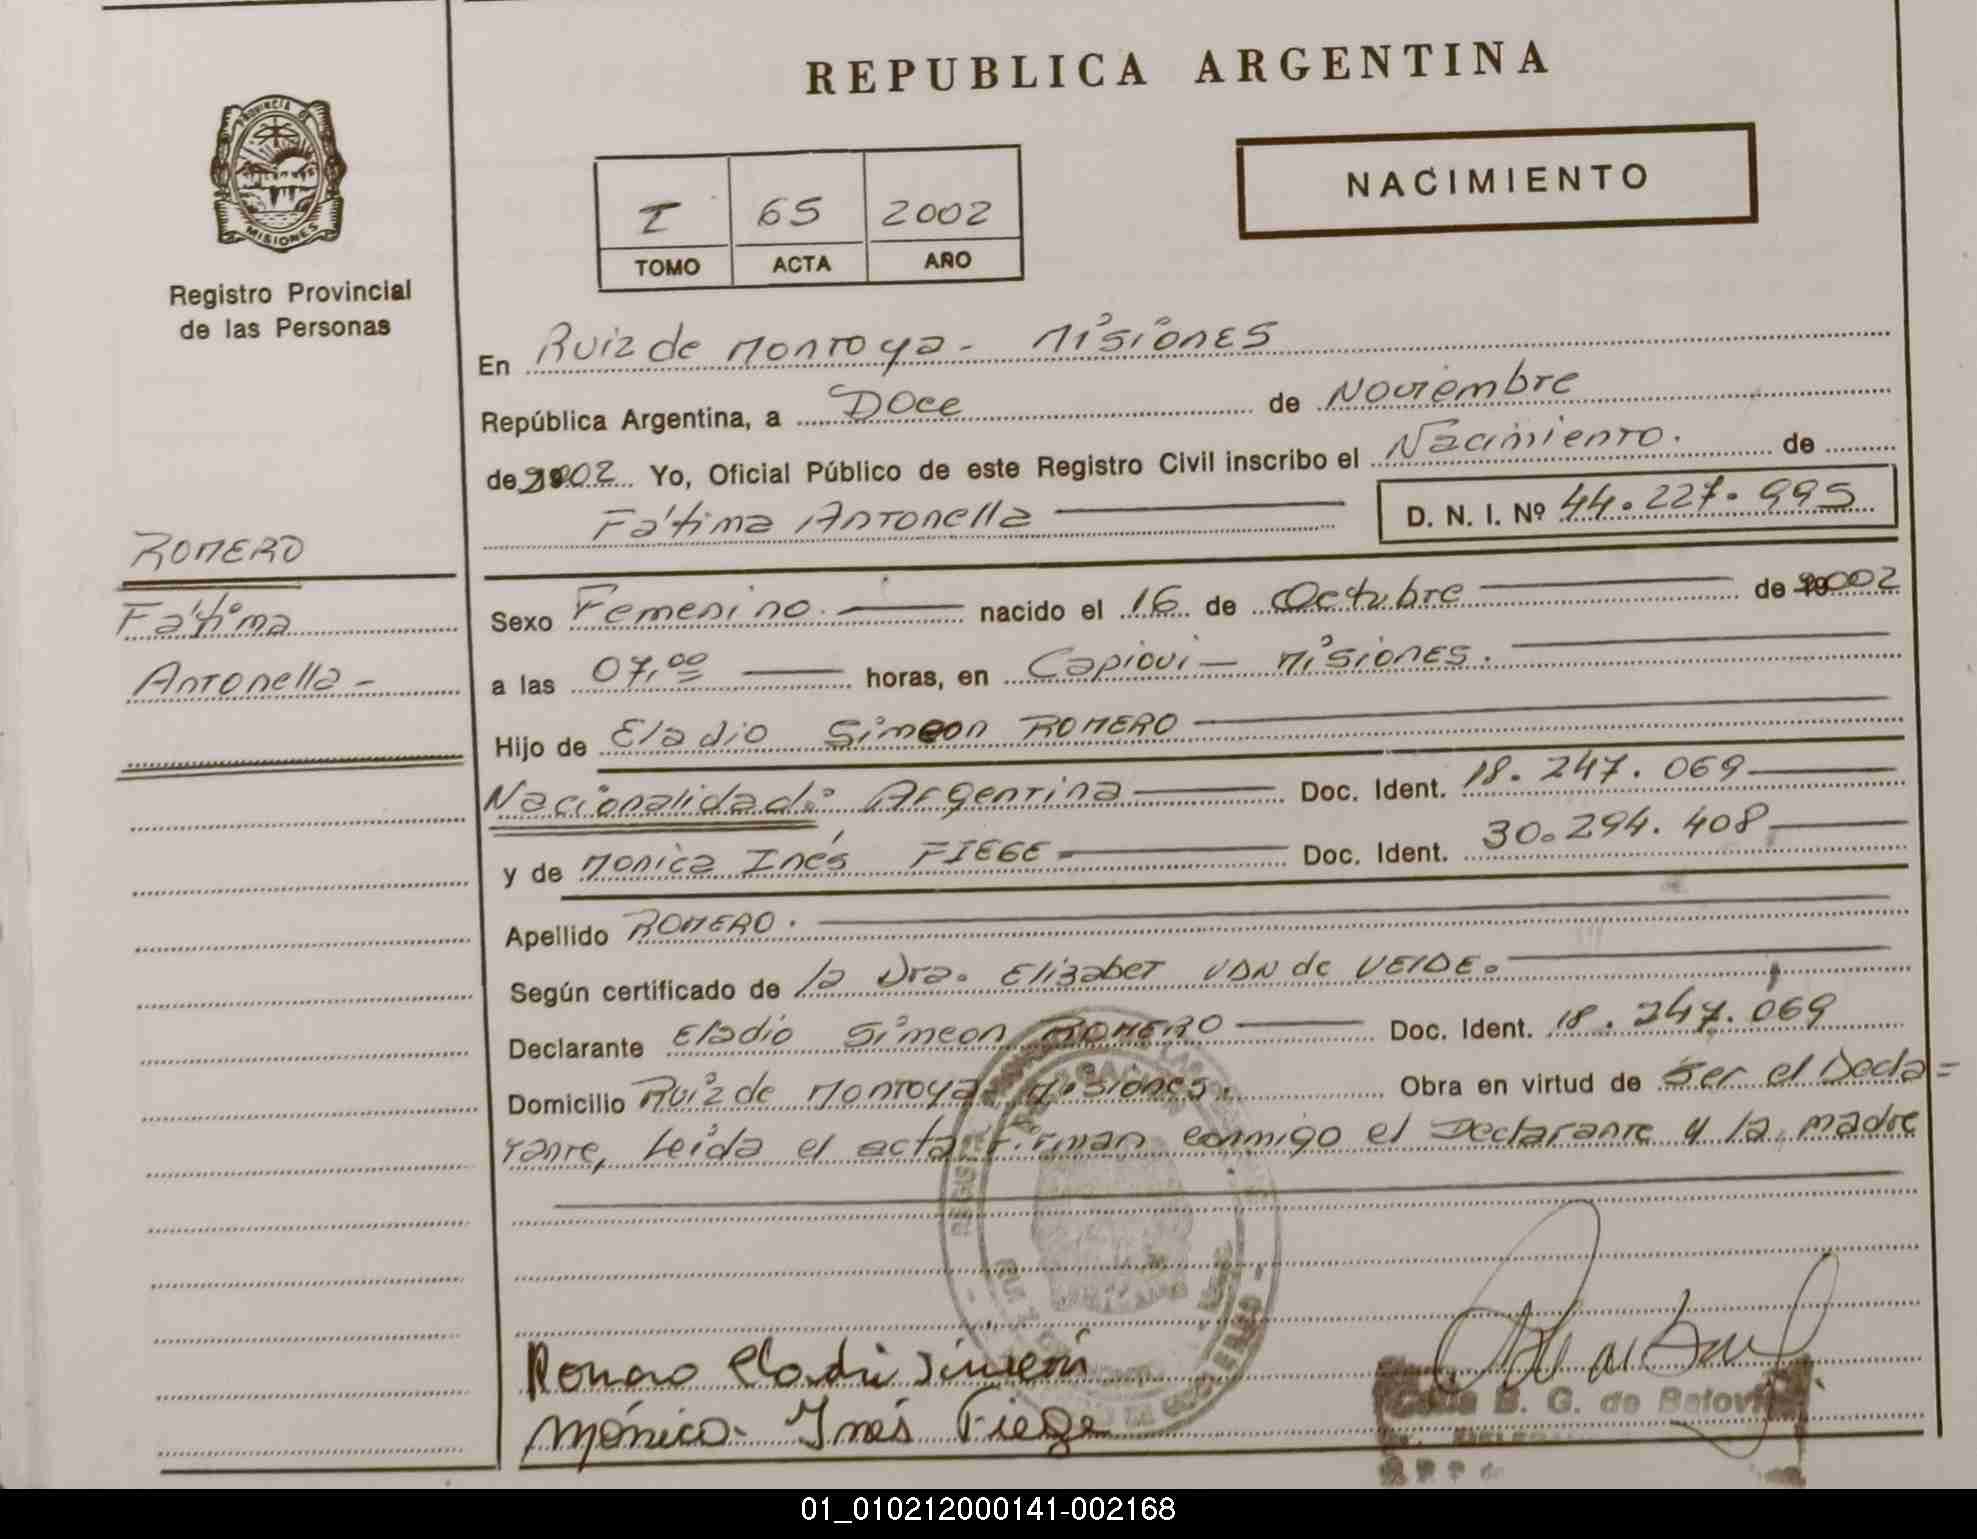 REPUBLICA ARGENTINA
PROVINCIA DE
MISIONES
Registro Provincial
de las Personas
I 65 2002
TOMO ACTA AÑO
NACIMIENTO
En Ruiz de Montoya - Misiones
República Argentina, a Doce de Noviembre
de 2002 Yo, Oficial Público de este Registro Civil inscribo el Nacimiento. de
Fátima Antonella D. N. I. Nº 44.227.995
ROMERO
Fátima
Antonella -
Sexo Femenino. nacido el 16 de Octubre de 2002
a las 07,00 horas, en Capiovi - Misiones.
Hijo de Eladio Simeon ROMERO
Nacionalidad: Argentina Doc. Ident. 18.247.069
y de Monica Inés FIEGE Doc. Ident. 30.294.408
Apellido ROMERO.
Según certificado de la Dra. Elizabet VAN de VELDE.
Declarante Eladio Simeon ROMERO Doc. Ident. 18.247.069
Domicilio Ruiz de Montoya Misiones. Obra en virtud de Ser el Decla=
rante, Leída el acta firman conmigo el Declarante y la madre
Romero Eladio Simeon
Mónica Inés Fiege
B. G. de
01_010212000141-002168